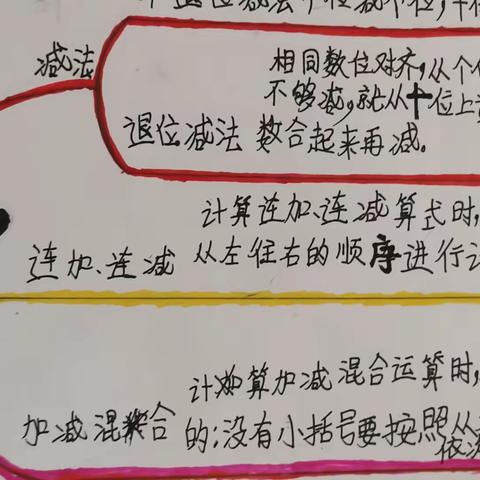 减法
相同数位对齐,从个
不够减,就从十位上
退位减法 数合起来再减.
计算连加、连减算式时,
连加、连减 从左往右的顺序进行
计算加减混合运算时,
加减混合 的;没有小括号要按照从
依次